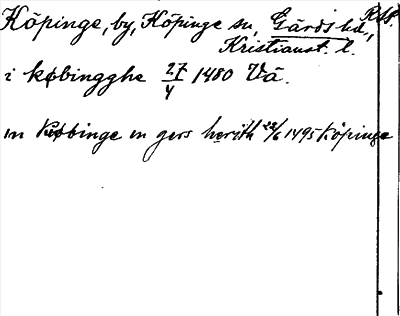 Köpinge, by, Köpinge sn, Gärds hd,
Kristianst. l.
i købingghe 27/4 1480 Vä.
in Købinge in gers herith 22/6 1495 Köpinge